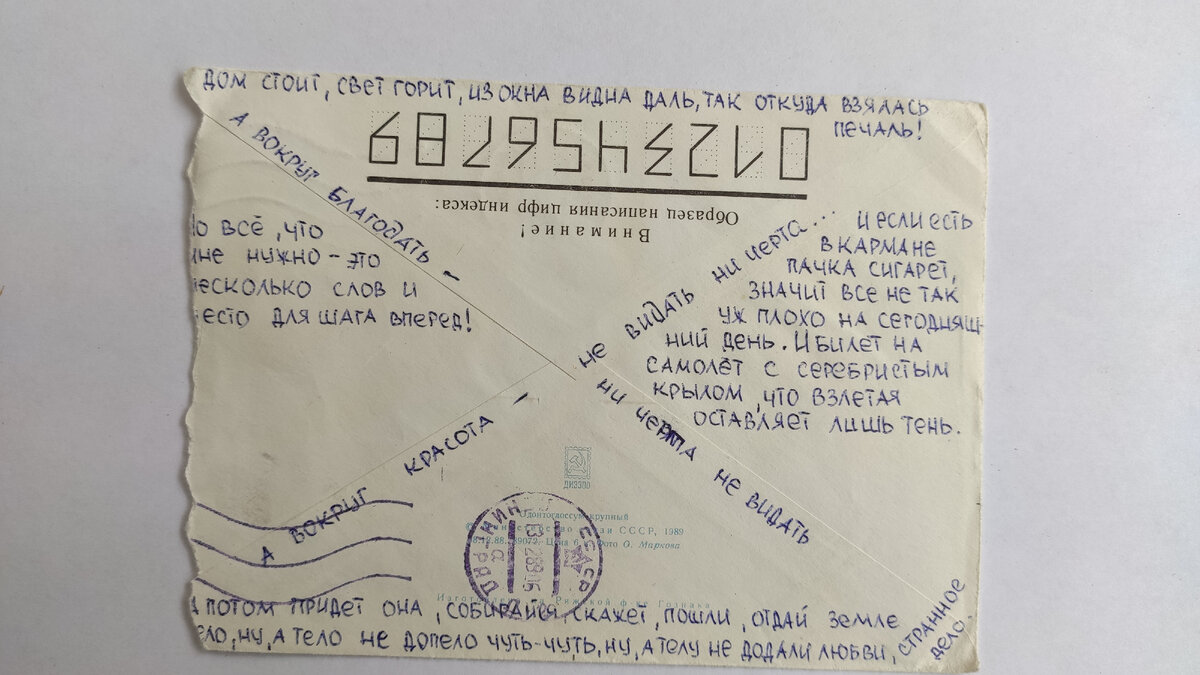 ДОМ СТОИТ, СВЕТ ГОРИТ, ИЗ ОКНА ВИДНА ДАЛЬ, ТАК ОТКУДА ВЗЯЛАСЬ
ПЕЧАЛЬ!
0123456789
Образец написания цифр индекса:
Внимание!
А ВОКРУГ БЛАГОДАТЬ –
НИ ЧЕРТА НЕ ВИДАТЬ
А ВОКРУГ КРАСОТА –
НЕ ВИДАТЬ НИ ЧЕРТА...
О ВСЁ, ЧТО
НЕ НУЖНО – ЭТО
ЕСКОЛЬКО СЛОВ И
ЕСТО ДЛЯ ШАГА ВПЕРЕД!
И ЕСЛИ ЕСТЬ
В КАРМАНЕ
ПАЧКА СИГАРЕТ,
ЗНАЧИТ ВСЕ НЕ ТАК
УЖ ПЛОХО НА СЕГОДНЯШ-
НИЙ ДЕНЬ. И БИЛЕТ НА
САМОЛЁТ С СЕРЕБРИСТЫМ
КРЫЛОМ, ЧТО ВЗЛЕТАЯ
ОСТАВЛЯЕТ ЛИШЬ ТЕНЬ.
Одонтоглоссум крупный
© СССР, 1989
Фото О. Маркова
СССР
ПОТОМ ПРИДЕТ ОНА, СОБИРАЙСЯ, СКАЖЕТ, ПОШЛИ, ОТДАЙ ЗЕМЛЕ
ЕЛО, НУ, А ТЕЛО НЕ ДОПЕЛО ЧУТЬ-ЧУТЬ, НУ, А ТЕЛУ НЕ ДОДАЛИ ЛЮБВИ, СТРАННОЕ
ДЕЛО.